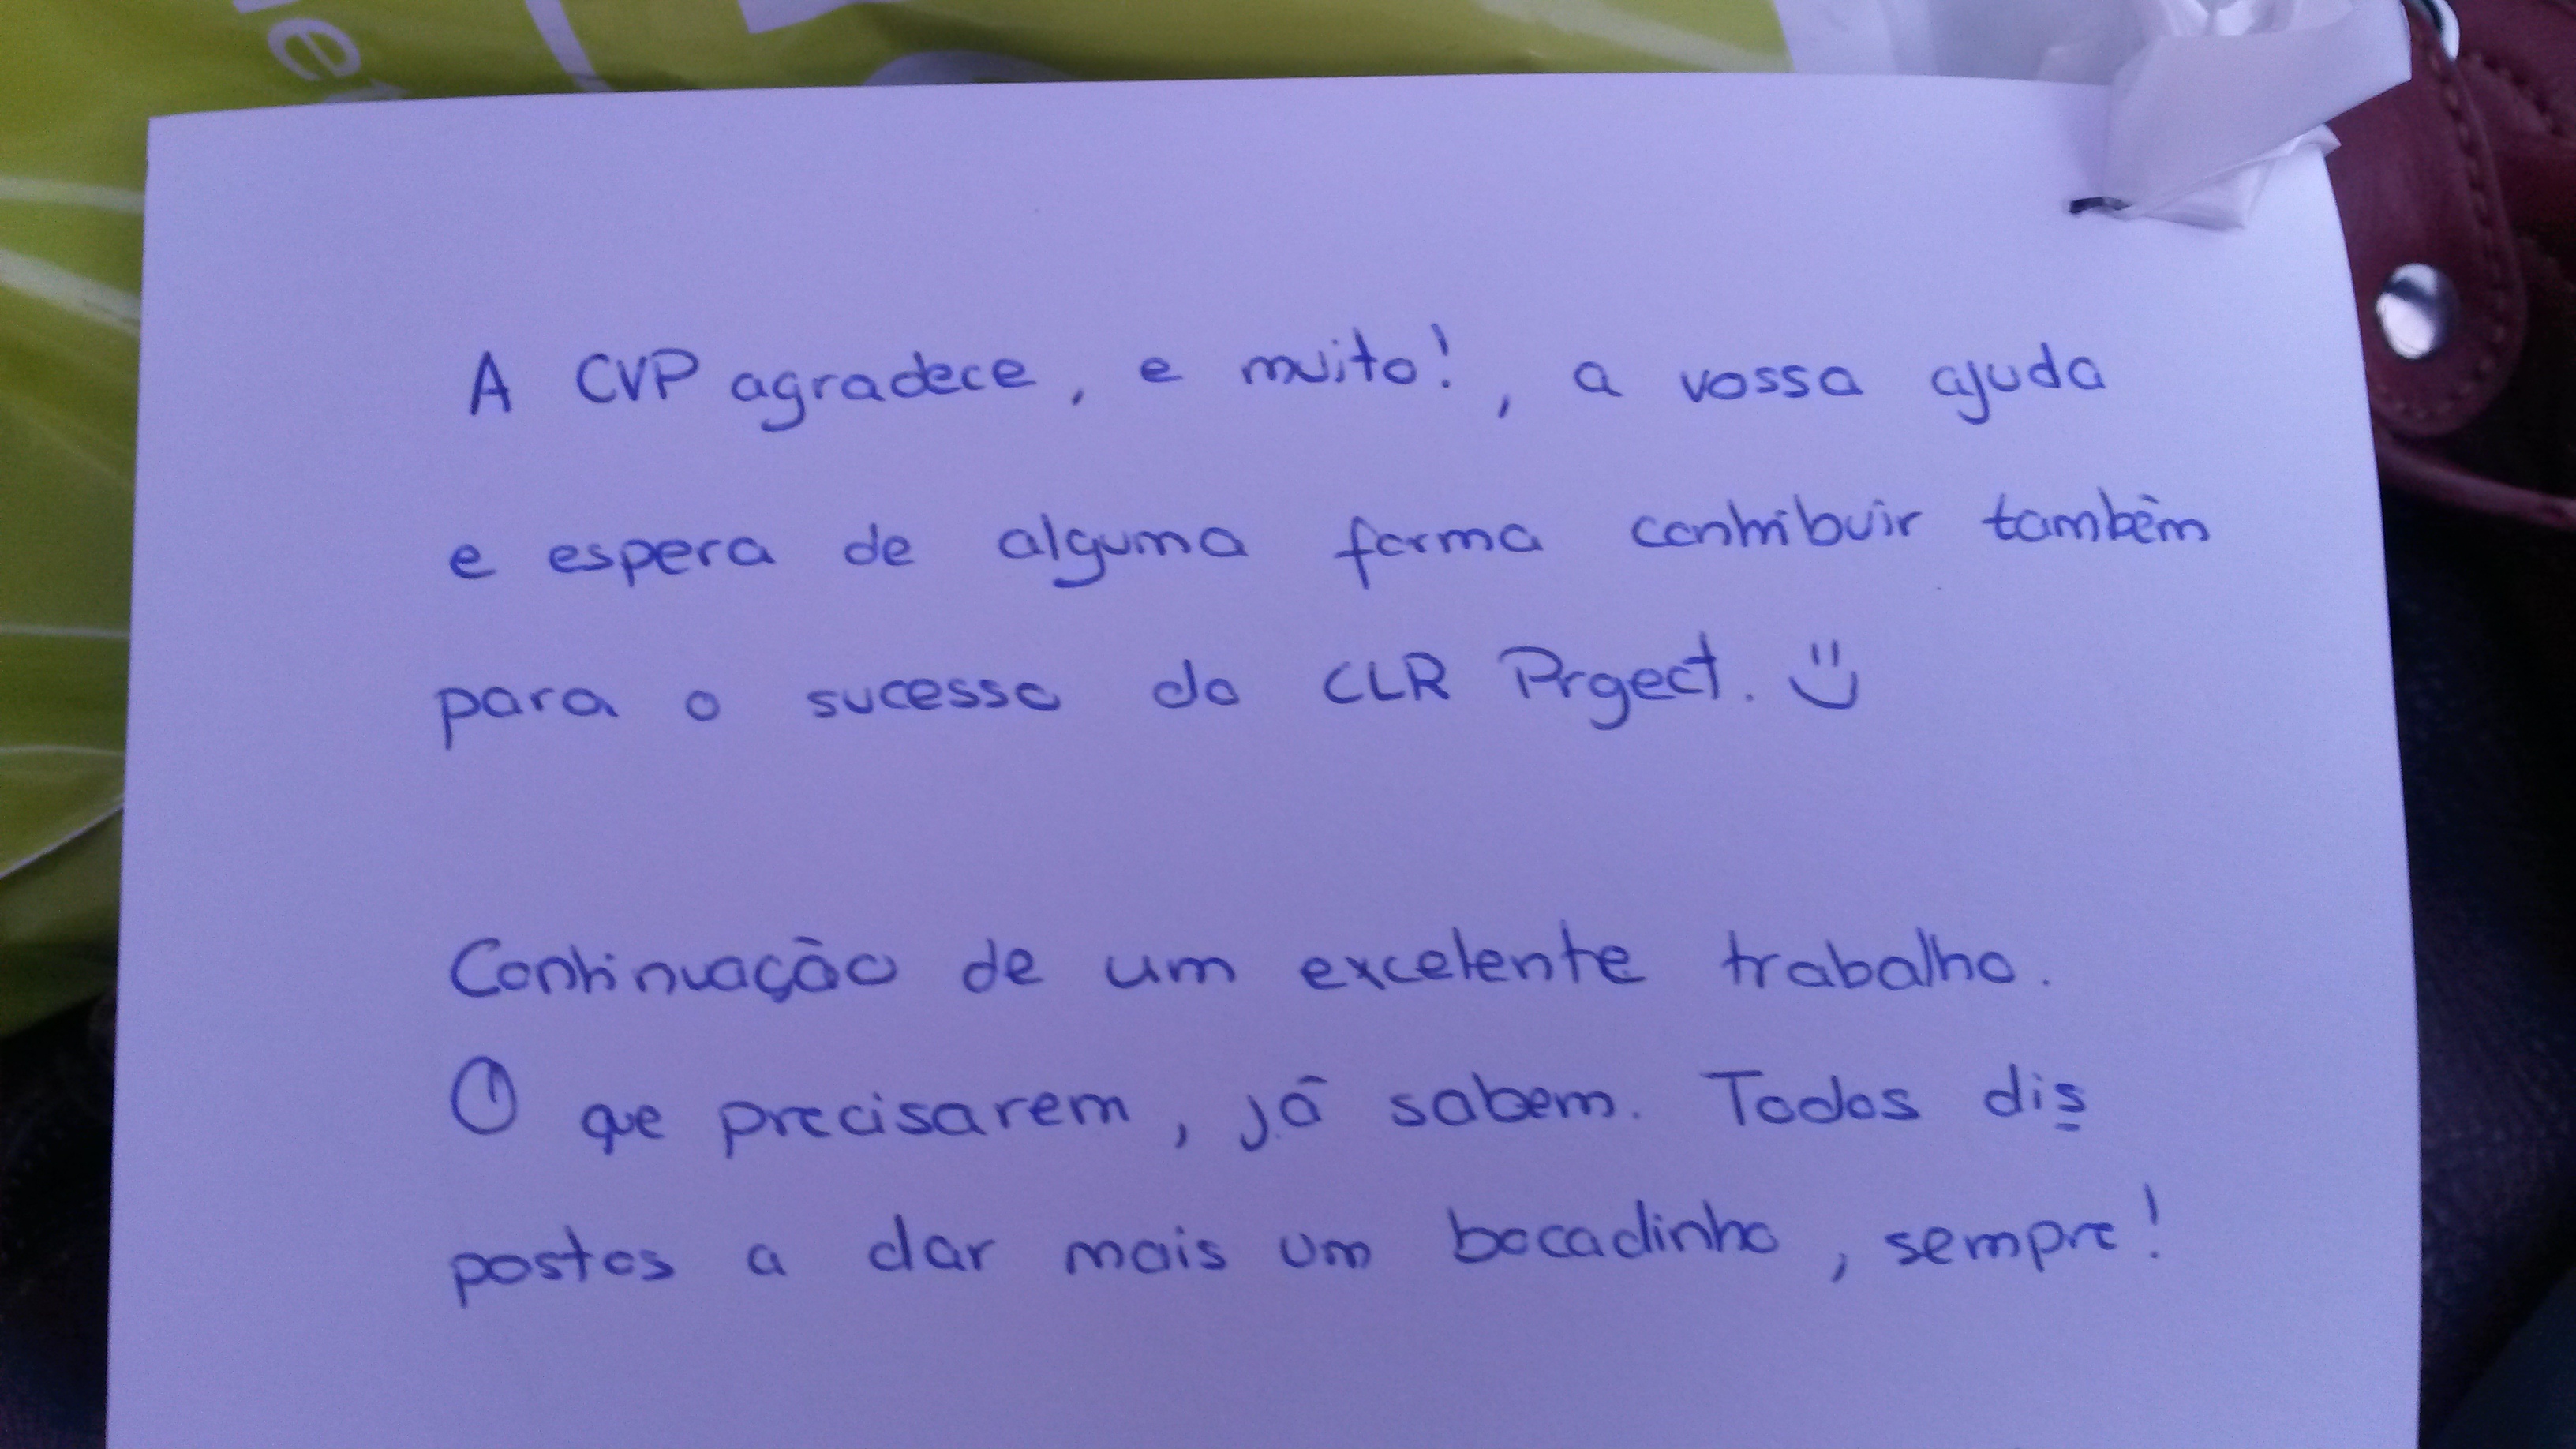 A CVP agradece, e muito!, a vossa ajuda
e espera de alguma forma contribuir também
para o sucesso do CLR Project. :)
Continuação de um excelente trabalho.
O que precisarem, já sabem. Todos dis
postos a dar mais um bocadinho, sempre!